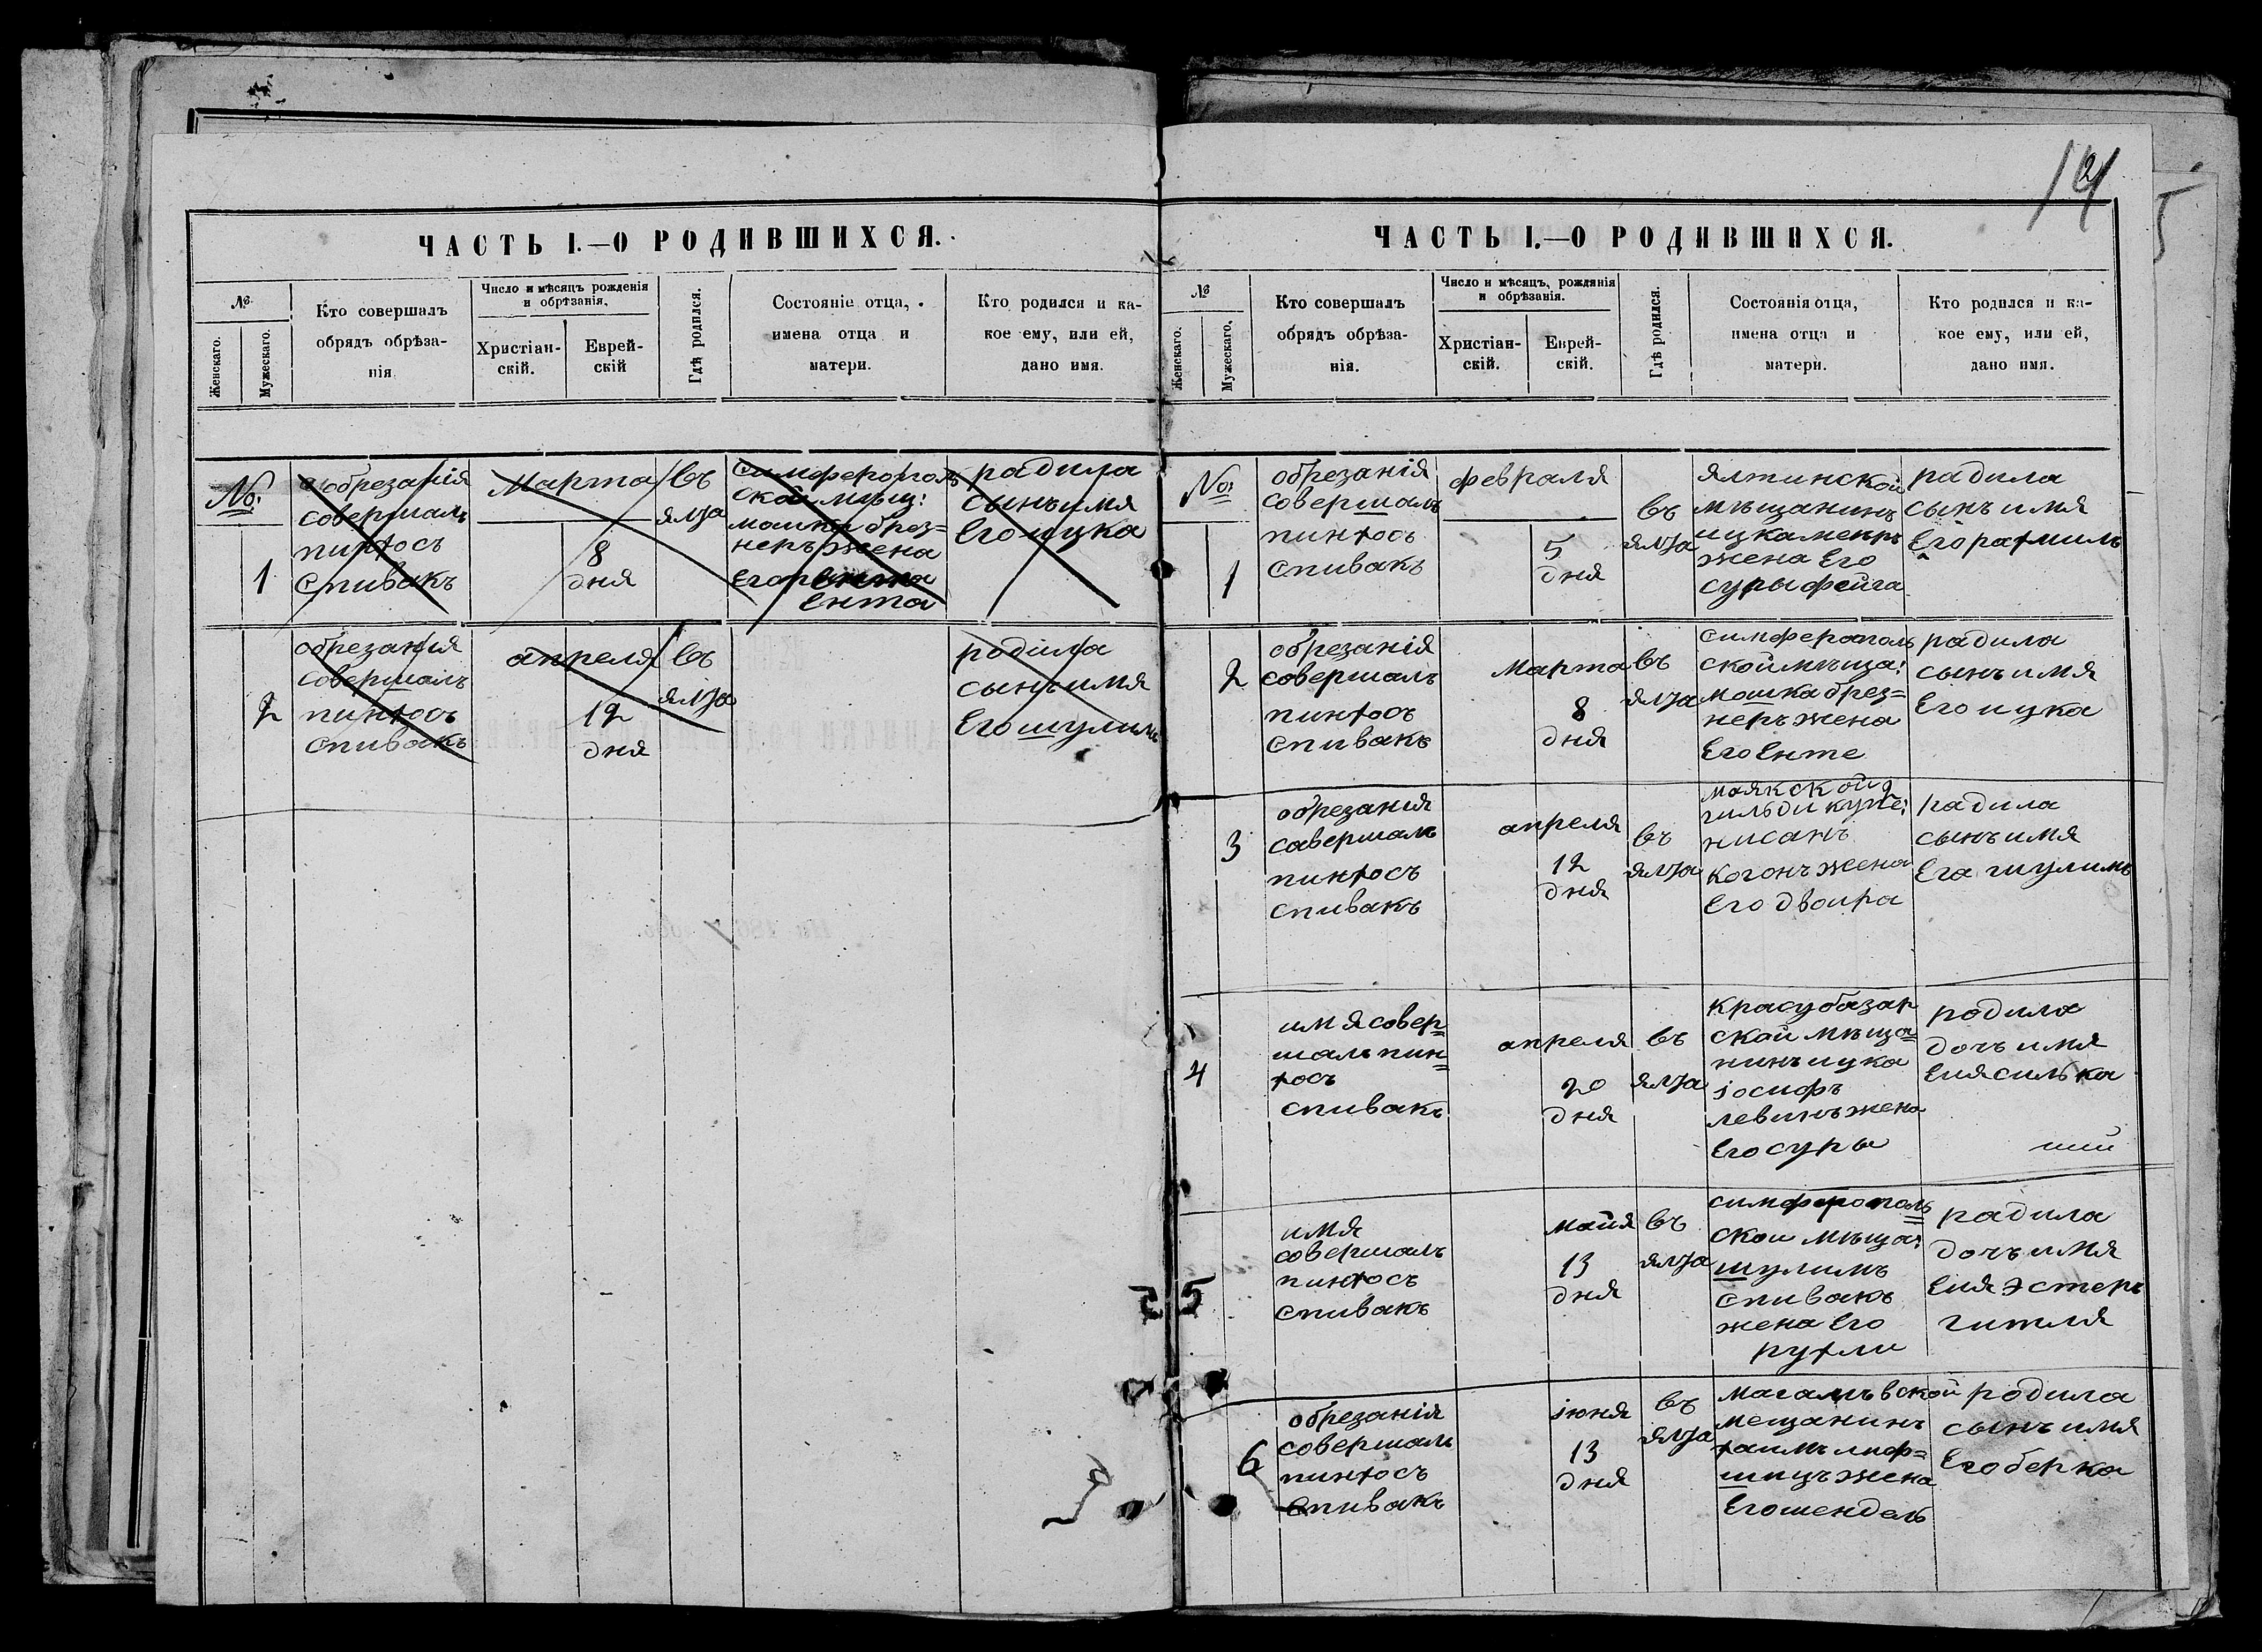 ЧАСТЬ I.—О РОДИВШИХСЯ.
№
Женскаго.
Мужескаго.
Кто совершалъ
обрядъ обрѣза-
нія
Число и мѣсяцъ рожденія
и обрѣзанія.
Христіан-
скій.
Еврей-
скій
Гдѣ родился.
Состояніе отца,
имена отца и
матери.
Кто родился и ка-
кое ему, или ей,
дано имя.
№:
1
обрезанія
совершалъ
пинхосъ
спивакъ
Марта
8
дня
въ
ялта
симферополь
ской мѣщ:
мошка брез=
неръ жена
Его
Ента
радила
сынъ имя
Его ицка
2
обрезания
совершалъ
пинхосъ
спивакъ
апреля
12
дня
въ
ялта
роділа
сынъ имя
Его шулимъ
ЧАСТЬ I.—О РОДИВШИХСЯ.
№
Женскаго.
Мужескаго.
Кто совершалъ
обрядъ обрѣза-
нія.
Число и мѣсяцъ, рожденія
и обрѣзанія.
Христіан-
скій.
Еврей-
скій.
Гдѣ родился.
Состоянія отца,
имена отца и
матери.
Кто родился и ка-
кое ему, или ей,
дано имя.
№:
1
обрезанія
совершалъ
пинхосъ
спивакъ
февраля
5
дня
въ
ялта
ялтинской
мѣщанинъ
ицка
жена Его
суры фейга
радила
сынъ имя
Его рахмиль
2
обрезанія
совершалъ
пинхосъ
спивакъ
Марта
8
дня
въ
ялта
симферополь
ской мѣща:
мошка брез=
неръ жена
Его Енте
радила
сынъ имя
Его ицка
3
обрезания
савершалъ
пинхосъ
спивакъ
апреля
12
дня
въ
ялта
маякской 2
гильди купе:
нисанъ
когонъ жена
Его двоира
радила
сынъ имя
Его шулимъ
4
имя совер=
шалъ пин=
хосъ
спивакъ
апреля
20
дня
въ
ялта
красубазар
ской мѣща=
нинъ ицка
іосифъ
левинъ жена
Его суры
родила
дочь имя
Ейя силька
5
имя
совершалъ
пинхосъ
спивакъ
майя
13
дня
въ
ялта
симферополь=
ской мѣща:
шулимъ
спивакъ
жена Его
рухли
радила
дочь имя
Ейя Эстеръ
гитля
6
обрезанія
совершалъ
пинхосъ
спивакъ
іюня
13
дня
въ
ялта
мещанинъ
хаимъ лиф=
шицъ жена
Его шендель
родила
сынъ имя
Его берка